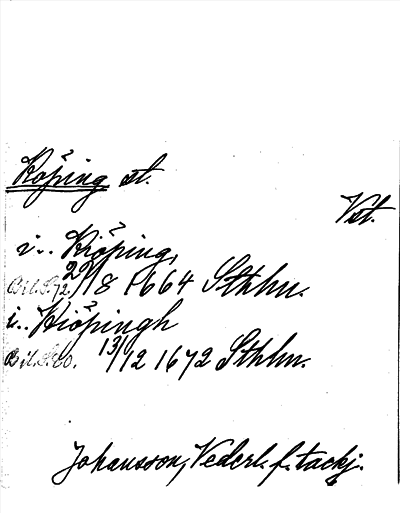 Köping st.
Vst.
i.. Kiöping,
22/8 1664 Sthlm.
i.. Kiöpingh
13/12 1672 Sthlm.
Johansson, Nederl. f. tackj.